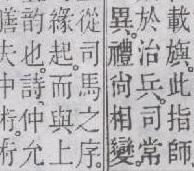 載旟此指師
於治兵司常
異禮尙相變
從司馬之序
緣起而與上
韵也詩仲允
膳夫中術